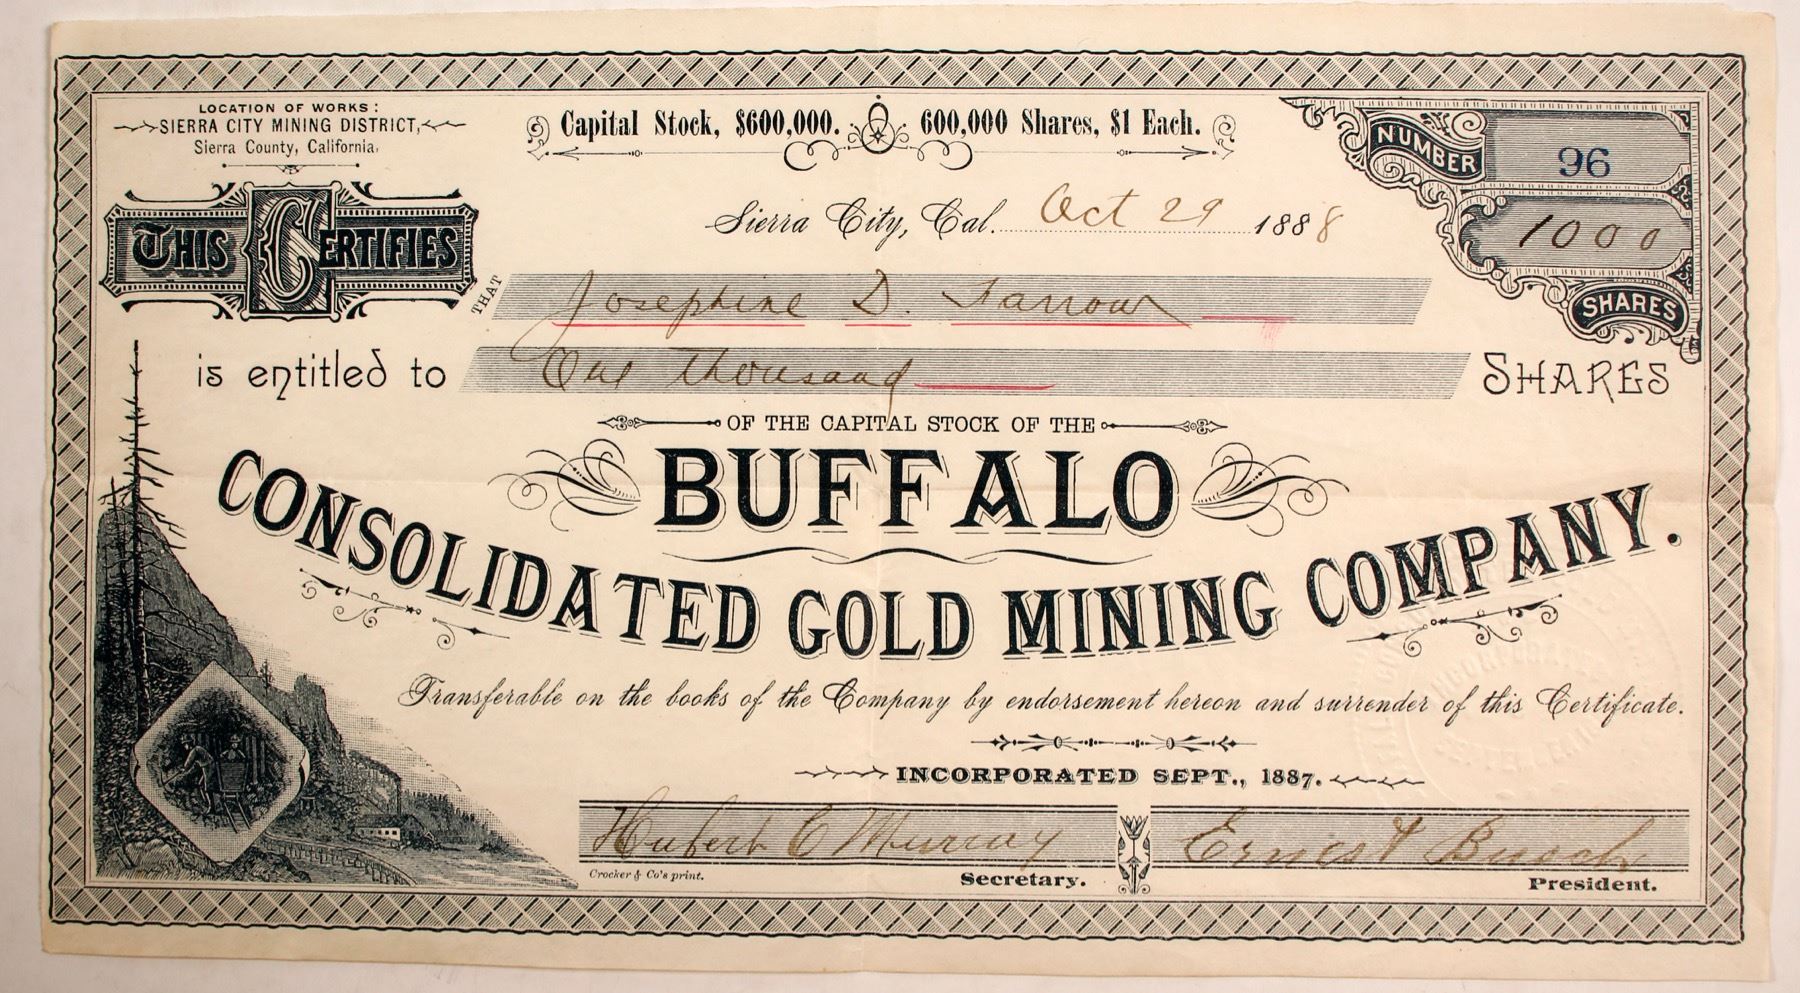 LOCATION OF WORKS:
SIERRA CITY MINING DISTRICT,
Sierra County, California.
Capital Stock, $600,000. 600,000 Shares, $1 Each.
NUMBER 96
1000
SHARES
Sierra City, Cal. Oct 29 1888
THIS CERTIFIES
THAT Josephine D. Farrow
is entitled to One thousand SHARES
OF THE CAPITAL STOCK OF THE
BUFFALO
CONSOLIDATED GOLD MINING COMPANY.
Transferable on the books of the Company by endorsement hereon and surrender of this Certificate.
INCORPORATED SEPT., 1887.
Hubert C Murray Ernest Busch
Crocker & Co's print. Secretary. President.